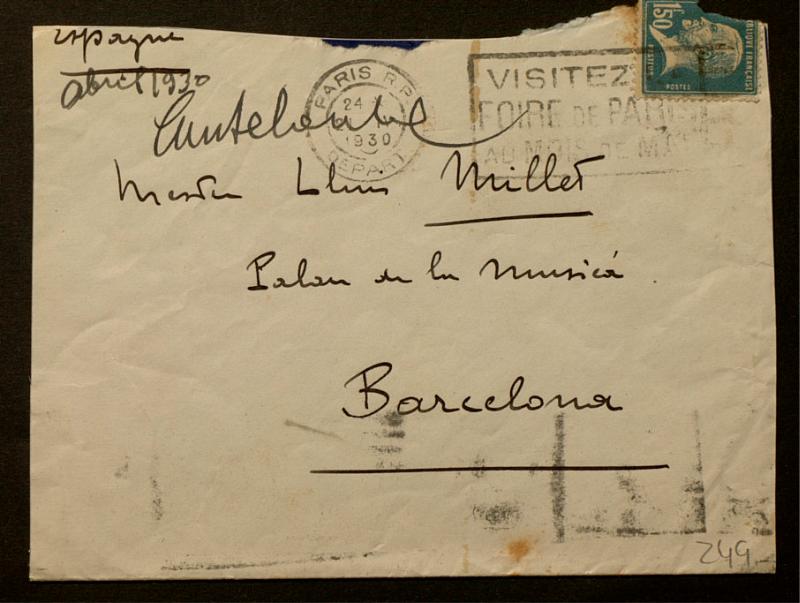 Espagne
abril 1930
Cantelambal
PARIS R.P.
24
1930
DEPART
VISITEZ
FOIRE DE PARIS
AU MOIS DE MAI
1F50
POSTES
PASTEUR
PUBLIQUE FRANÇAISE
Mestre Lluis Millet
Palau de la Musicá
Barcelona
249